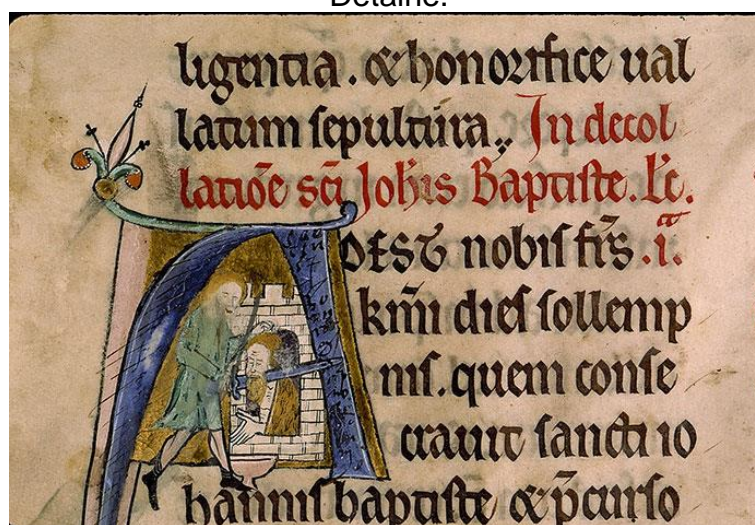 Detalhe.
ligentia. & honorifice ual
latum sepultura. In decol
latiōe sc̄i Joh̄is Baptiste. Lc̄.
ADEST nobis fr̄s .i.ᵃ
km̄i dies sollemp
nis. quem conse
crauit sancti io
hannis baptiste & p̄curso